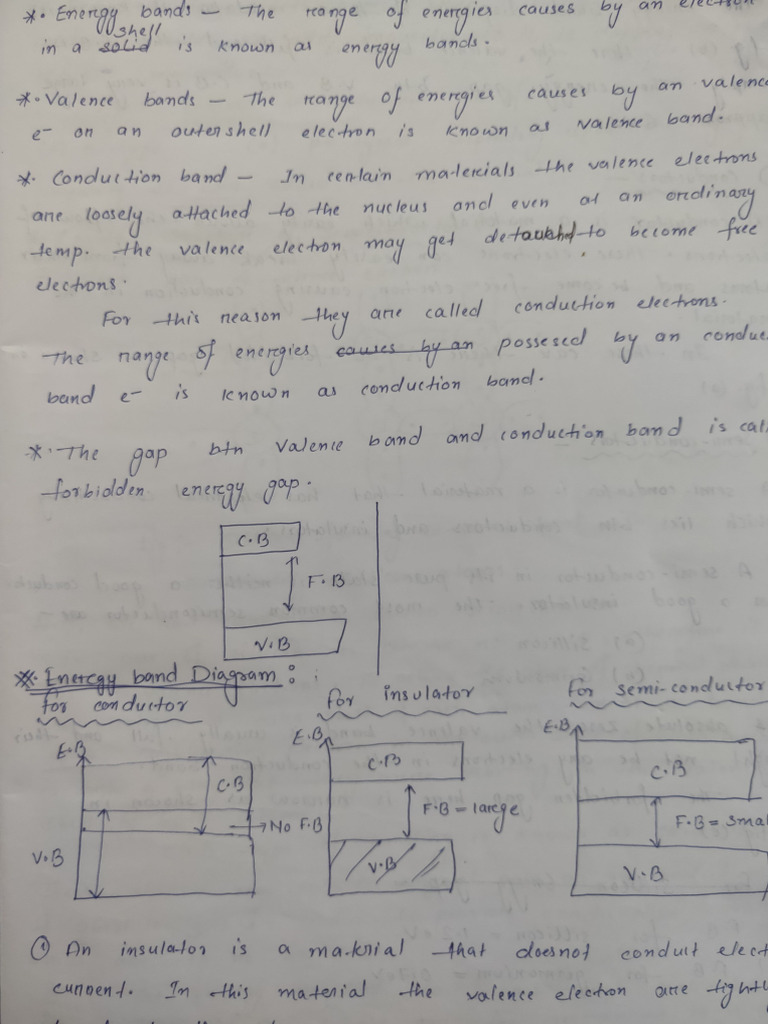 *. Energy bands – The range of energies causes by an electron
in a solid shell is known as energy bands.
*. Valence bands – The range of energies causes by an valence
e- on an outershell electron is known as valence band.
*. Conduction band – In certain materials the valence electrons
are loosely attached to the nucleus and even at an ordinary
temp. the valence electron may get detauched to become free
electrons.
For this reason they are called conduction electrons.
The range of energies causes by an possesed by an conduc
band e- is known as conduction band.
*. The gap btn Valence band and conduction band is cal
forbidden energy gap.
C.B
F.B
V.B
*. Energy band Diagram :
for conductor
for insulator
for semi-conductor
E.B
C.B
No F.B
V.B
E.B
C.B
F.B = large
V.B
E.B
C.B
F.B = smal
V.B
① An insulator is a material that doesnot conduct elect
current. In this material the valence electron are tightl